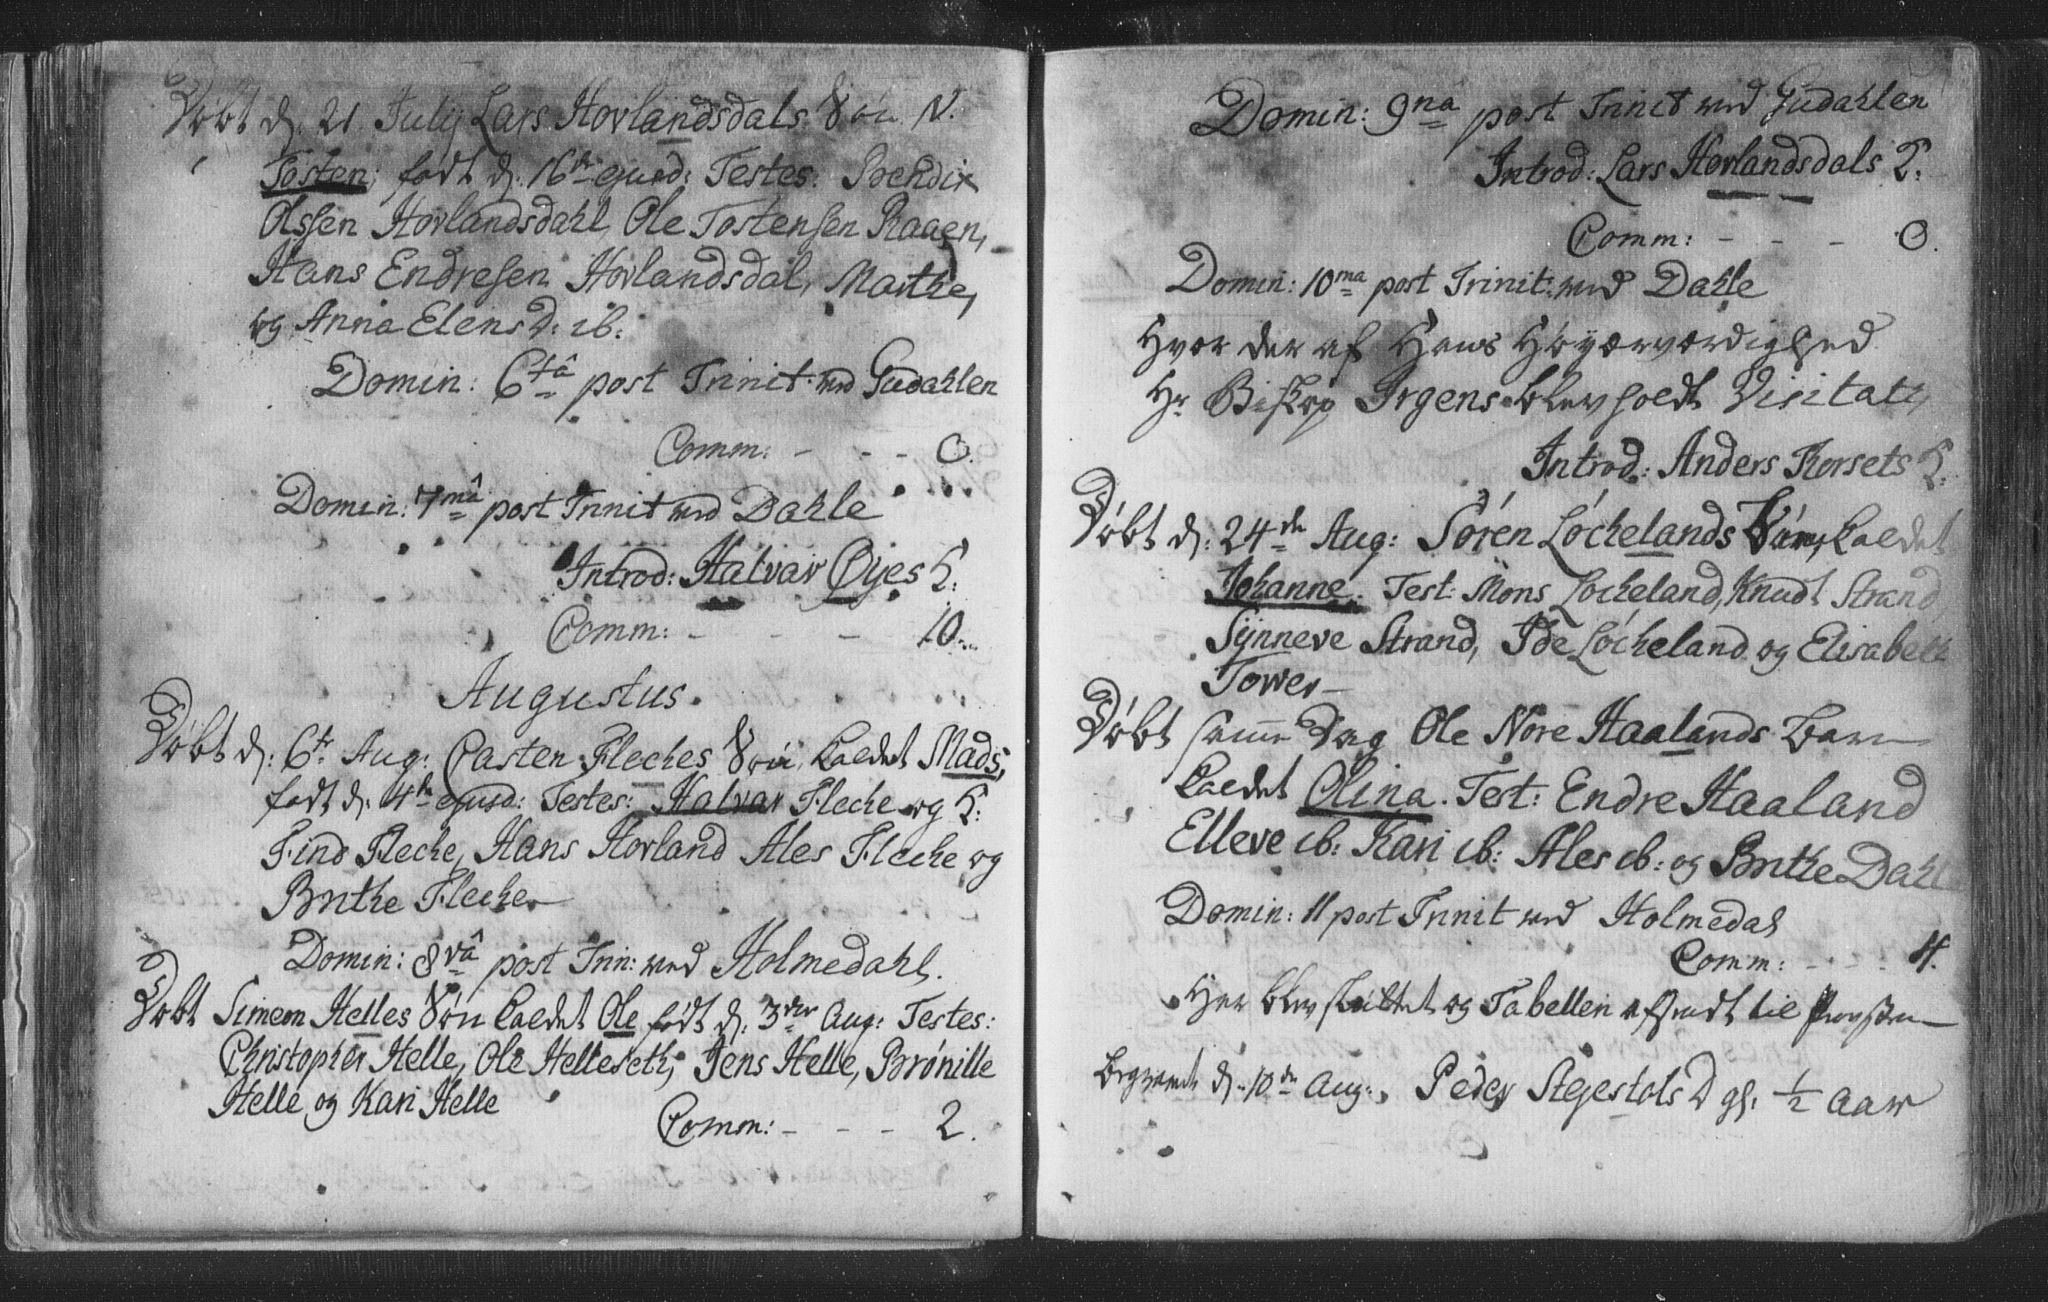 Døbt d. 21 July Lars Hovlandsdals Søn N.
Tosten, født d. 16de ejusd: Testes: Bendix
Olssen Hovlandsdahl, Ole Tostensen Raaen,
Hans Endresen Hovlandsdal, Marthe,
og Anna Elens D: ib:
Domin: 6tâ post Trinit: ved Gudahlen
Comm: - - - 0.
Domin: 7mâ post Trinit ved Dahle
Introd: Halvar Øyes K:
Comm: - - - 10.
Augustus.
Døbt d. 6te Aug: Casten Fleckes Søn, kaldet Mads,
født d. 4de ejusd: Testes: Halvar Flecke og K:
Find Flecke, Hans Hovland Ales Flecke og
Brithe Flecke
Domin: 8vâ post Trin: ved Holmedahl.
Døbt Simeon Helles Søn kaldet Ole født d. 3die Aug: Testes:
Christopher Helle, Ole Helleseth, Jens Helle, Brønille
Helle, og Kari Helle
Comm: - - - 2.
Domin: 9na post Trinit ved Gudahlen
Introd: Lars Hovlandsdals K:
Comm: - - - 0.
Domin: 10ma post Trinit: ved Dahle
Hvor der af Hans Høyærværdighed
Hr Biskop Irgens blev holdt Visitatz,
Introd: Anders Korsets K:
Døbt d. 24de Aug: Søren Løckelands Barn, kaldet
Johanne. Test: Mons Løckeland, Knudt Strand,
Synneve Strand, Ide Løckeland og Elisabeth
Tower
Døbt samme Dag Ole Nore Haalands Barn
kaldet Olina. Test: Endre Haaland
Elleve ib: Kari ib: Ales ib: og Brithe Dahle
Domin: 11 post Trinit ved Holmedal
Comm: - - - 4.
Her blev skiftet og Tabellen afsendt til Provsten
Begravet d. 10de Aug: Peder Stejestøls D gl. 1/2 Aar